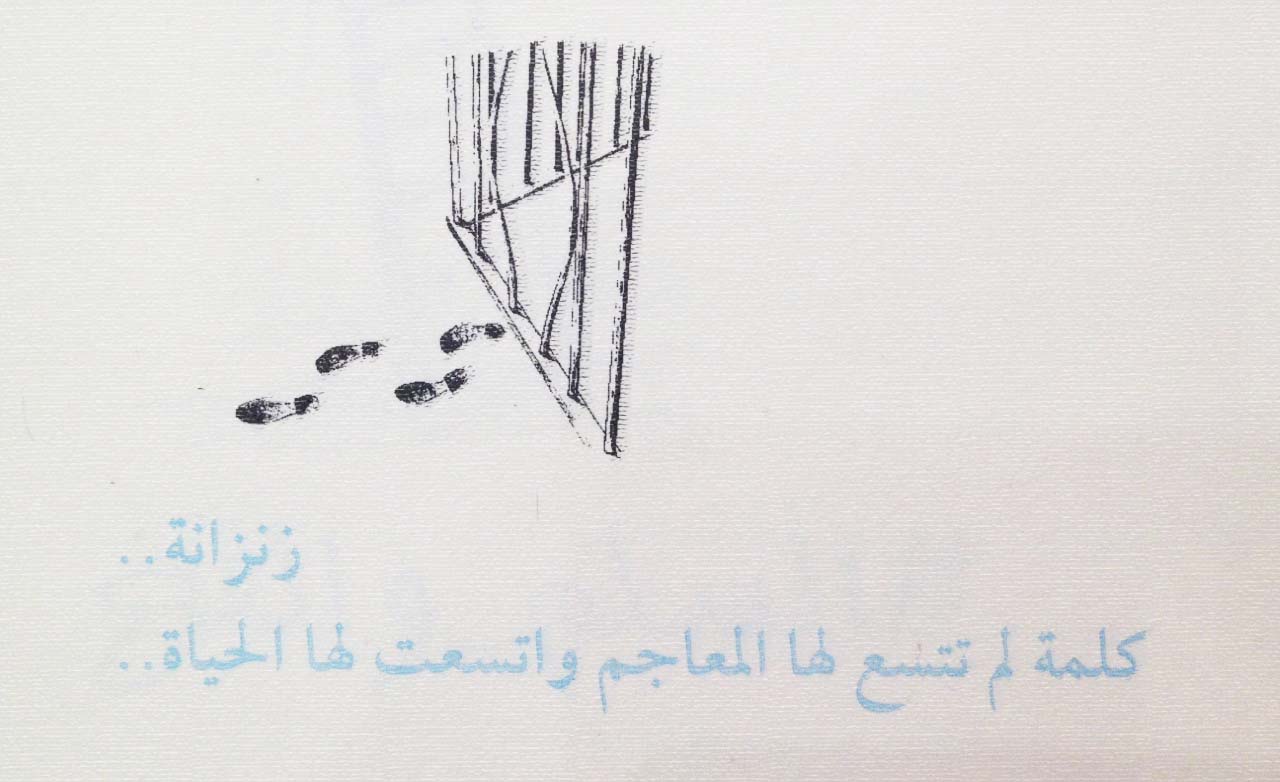 زنزانة..
كلمة لم تتسع لها المعاجم واتسعت لها الحياة..